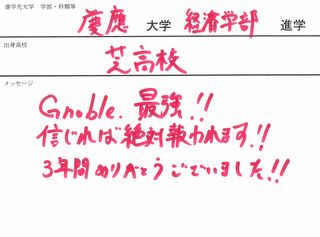 進学先大学 学部・科類等
慶應 大学 経済学部 進学
出身高校
芝高校
メッセージ
Gnoble. 最強!!
信じれば絶対報われます!!
3年間ありがとうございました!!